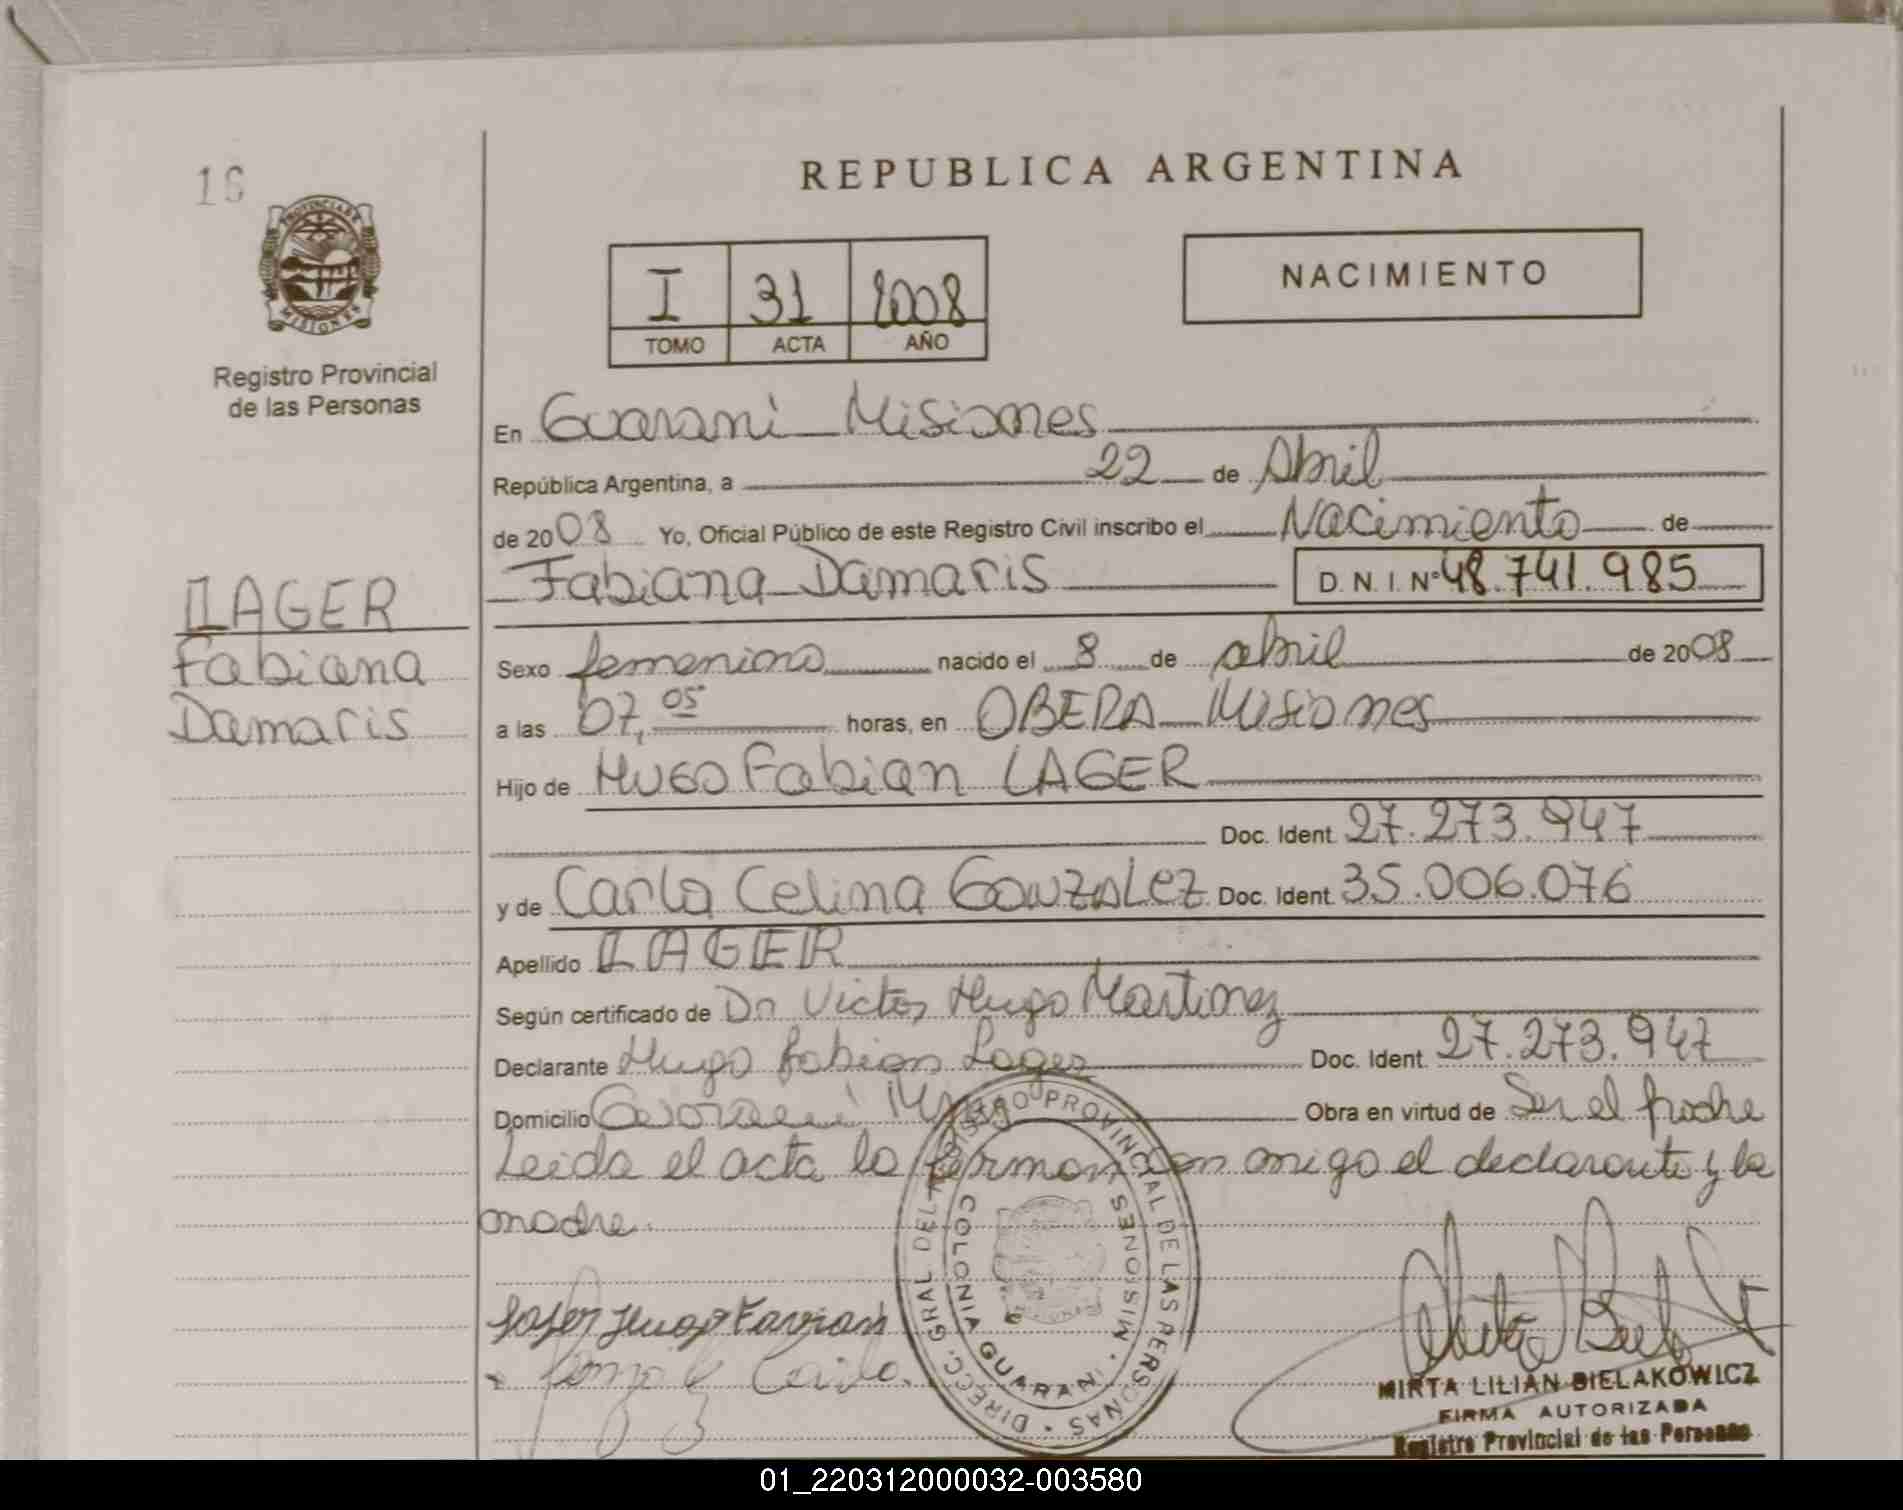 16
PROVINCIA DE
MISIONES
Registro Provincial
de las Personas
LAGER
Fabiana
Damaris
REPUBLICA ARGENTINA
I 31 2008
TOMO ACTA AÑO
NACIMIENTO
En Guarani Misiones
República Argentina, a 22 de Abril
de 2008 Yo, Oficial Público de este Registro Civil inscribo el Nacimiento de
Fabiana Damaris D.N.I. Nº 48.741.985
Sexo femenino nacido el 8 de abril de 2008
a las 07,05 horas, en OBERA Misiones
Hijo de HUGO Fabian LAGER
Doc. Ident. 27.273.947
y de Carla Celina GONZALEZ Doc. Ident. 35.006.076
Apellido LAGER
Según certificado de Dr Victor Hugo Martinez
Declarante Hugo fabian Lager Doc. Ident. 27.273.947
Domicilio Guarani Obra en virtud de Ser el padre
Leida el acta la firman con migo el declarante y la
madre.
DIRECC. GRAL DEL REGISTRO PROVINCIAL DE LAS PERSONAS
COLONIA GUARANI · MISIONES
Lager Hugo Favian
Carla
MIRTA LILIAN BIELAKOWICZ
FIRMA AUTORIZADA
Registro Provincial de las Personas
01_220312000032-003580